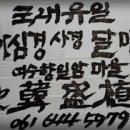 국내유일
심경 사경 달마
여수향일암 마을
盛植
061 644 5979